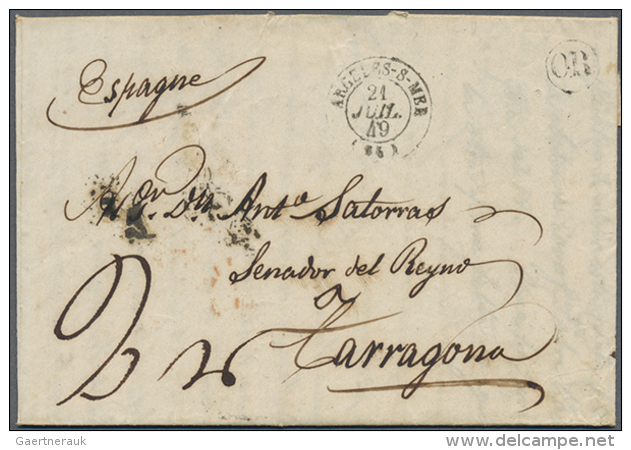 Espagne
ARGELES-S-MER
21
JUIL.
49
(65)
OR
A Sor. Dn. Anto. Satorras
Senador del Reyno
Tarragona
2
Gaertnerauk
delcampe.net